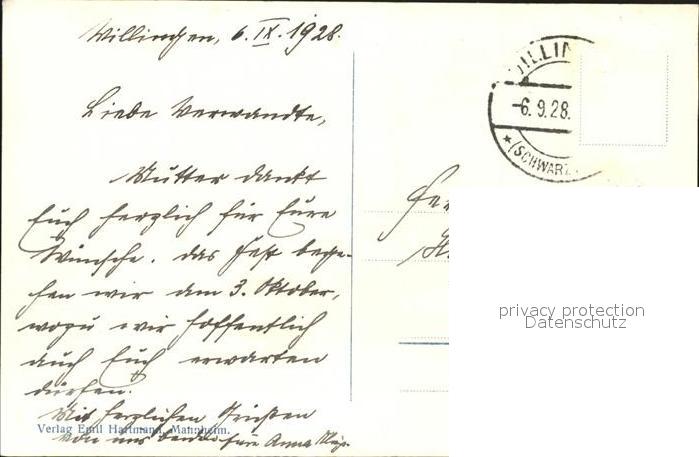 Villingen, 6.IX.1928.
Liebe Verwandte,
Mutter dankt
Euch herzlich für Eure
Wünsche. Das Fest bege-
hen wir am 3. Oktober,
wozu wir hoffentlich
auch Euch erwarten
dürfen.
Mit herzlichen Grüßen
Verlag Emil Hartmann, Mannheim.
von uns beiden Eure Anna
VILLIN
-6.9.28.
★ (SCHWARZ
privacy protection
Datenschutz